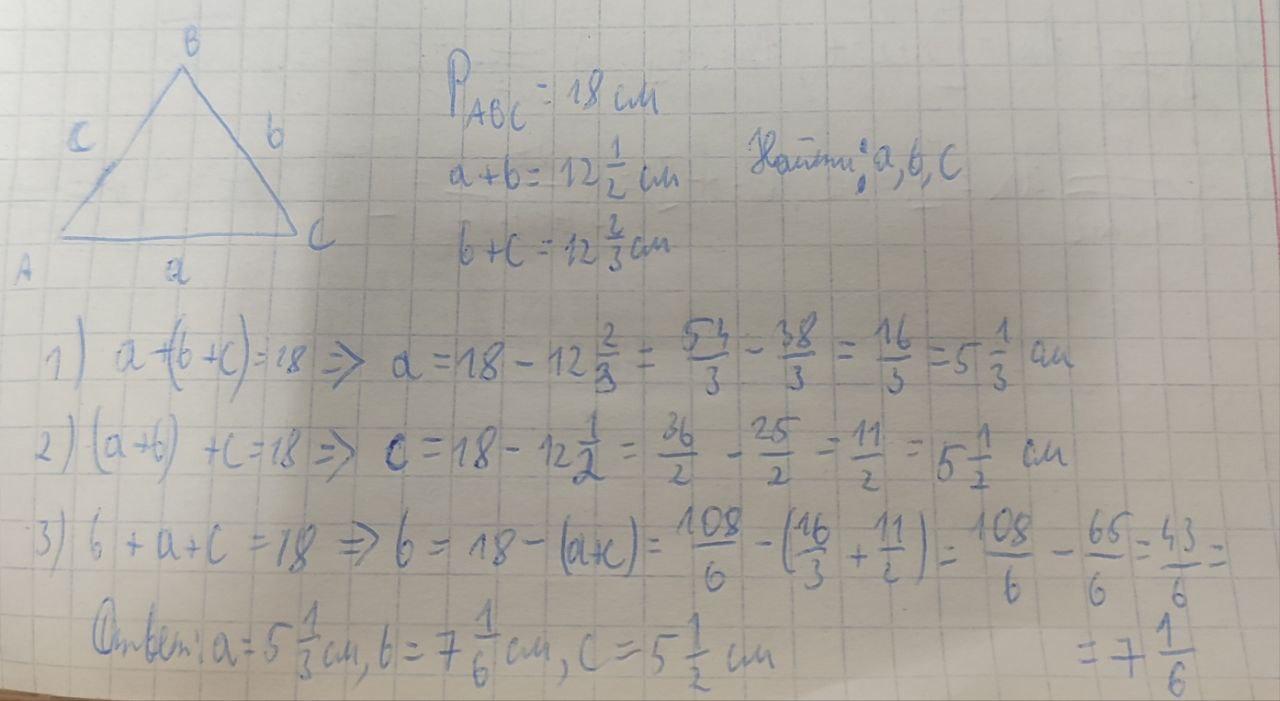 B
c b
A a C
P_ABC = 18 см
a+b = 12 1/2 см Найти: a, b, c
b+c = 12 2/3 см
1) a+(b+c)=18 ⇒ a = 18 - 12 2/3 = 54/3 - 38/3 = 16/3 = 5 1/3 см
2) (a+b) + c = 18 ⇒ c = 18 - 12 1/2 = 36/2 - 25/2 = 11/2 = 5 1/2 см
3) b + a + c = 18 ⇒ b = 18 - (a+c) = 108/6 - (16/3 + 11/2) = 108/6 - 65/6 = 43/6 =
= 7 1/6
Ответ: a = 5 1/3 см, b = 7 1/6 см, c = 5 1/2 см